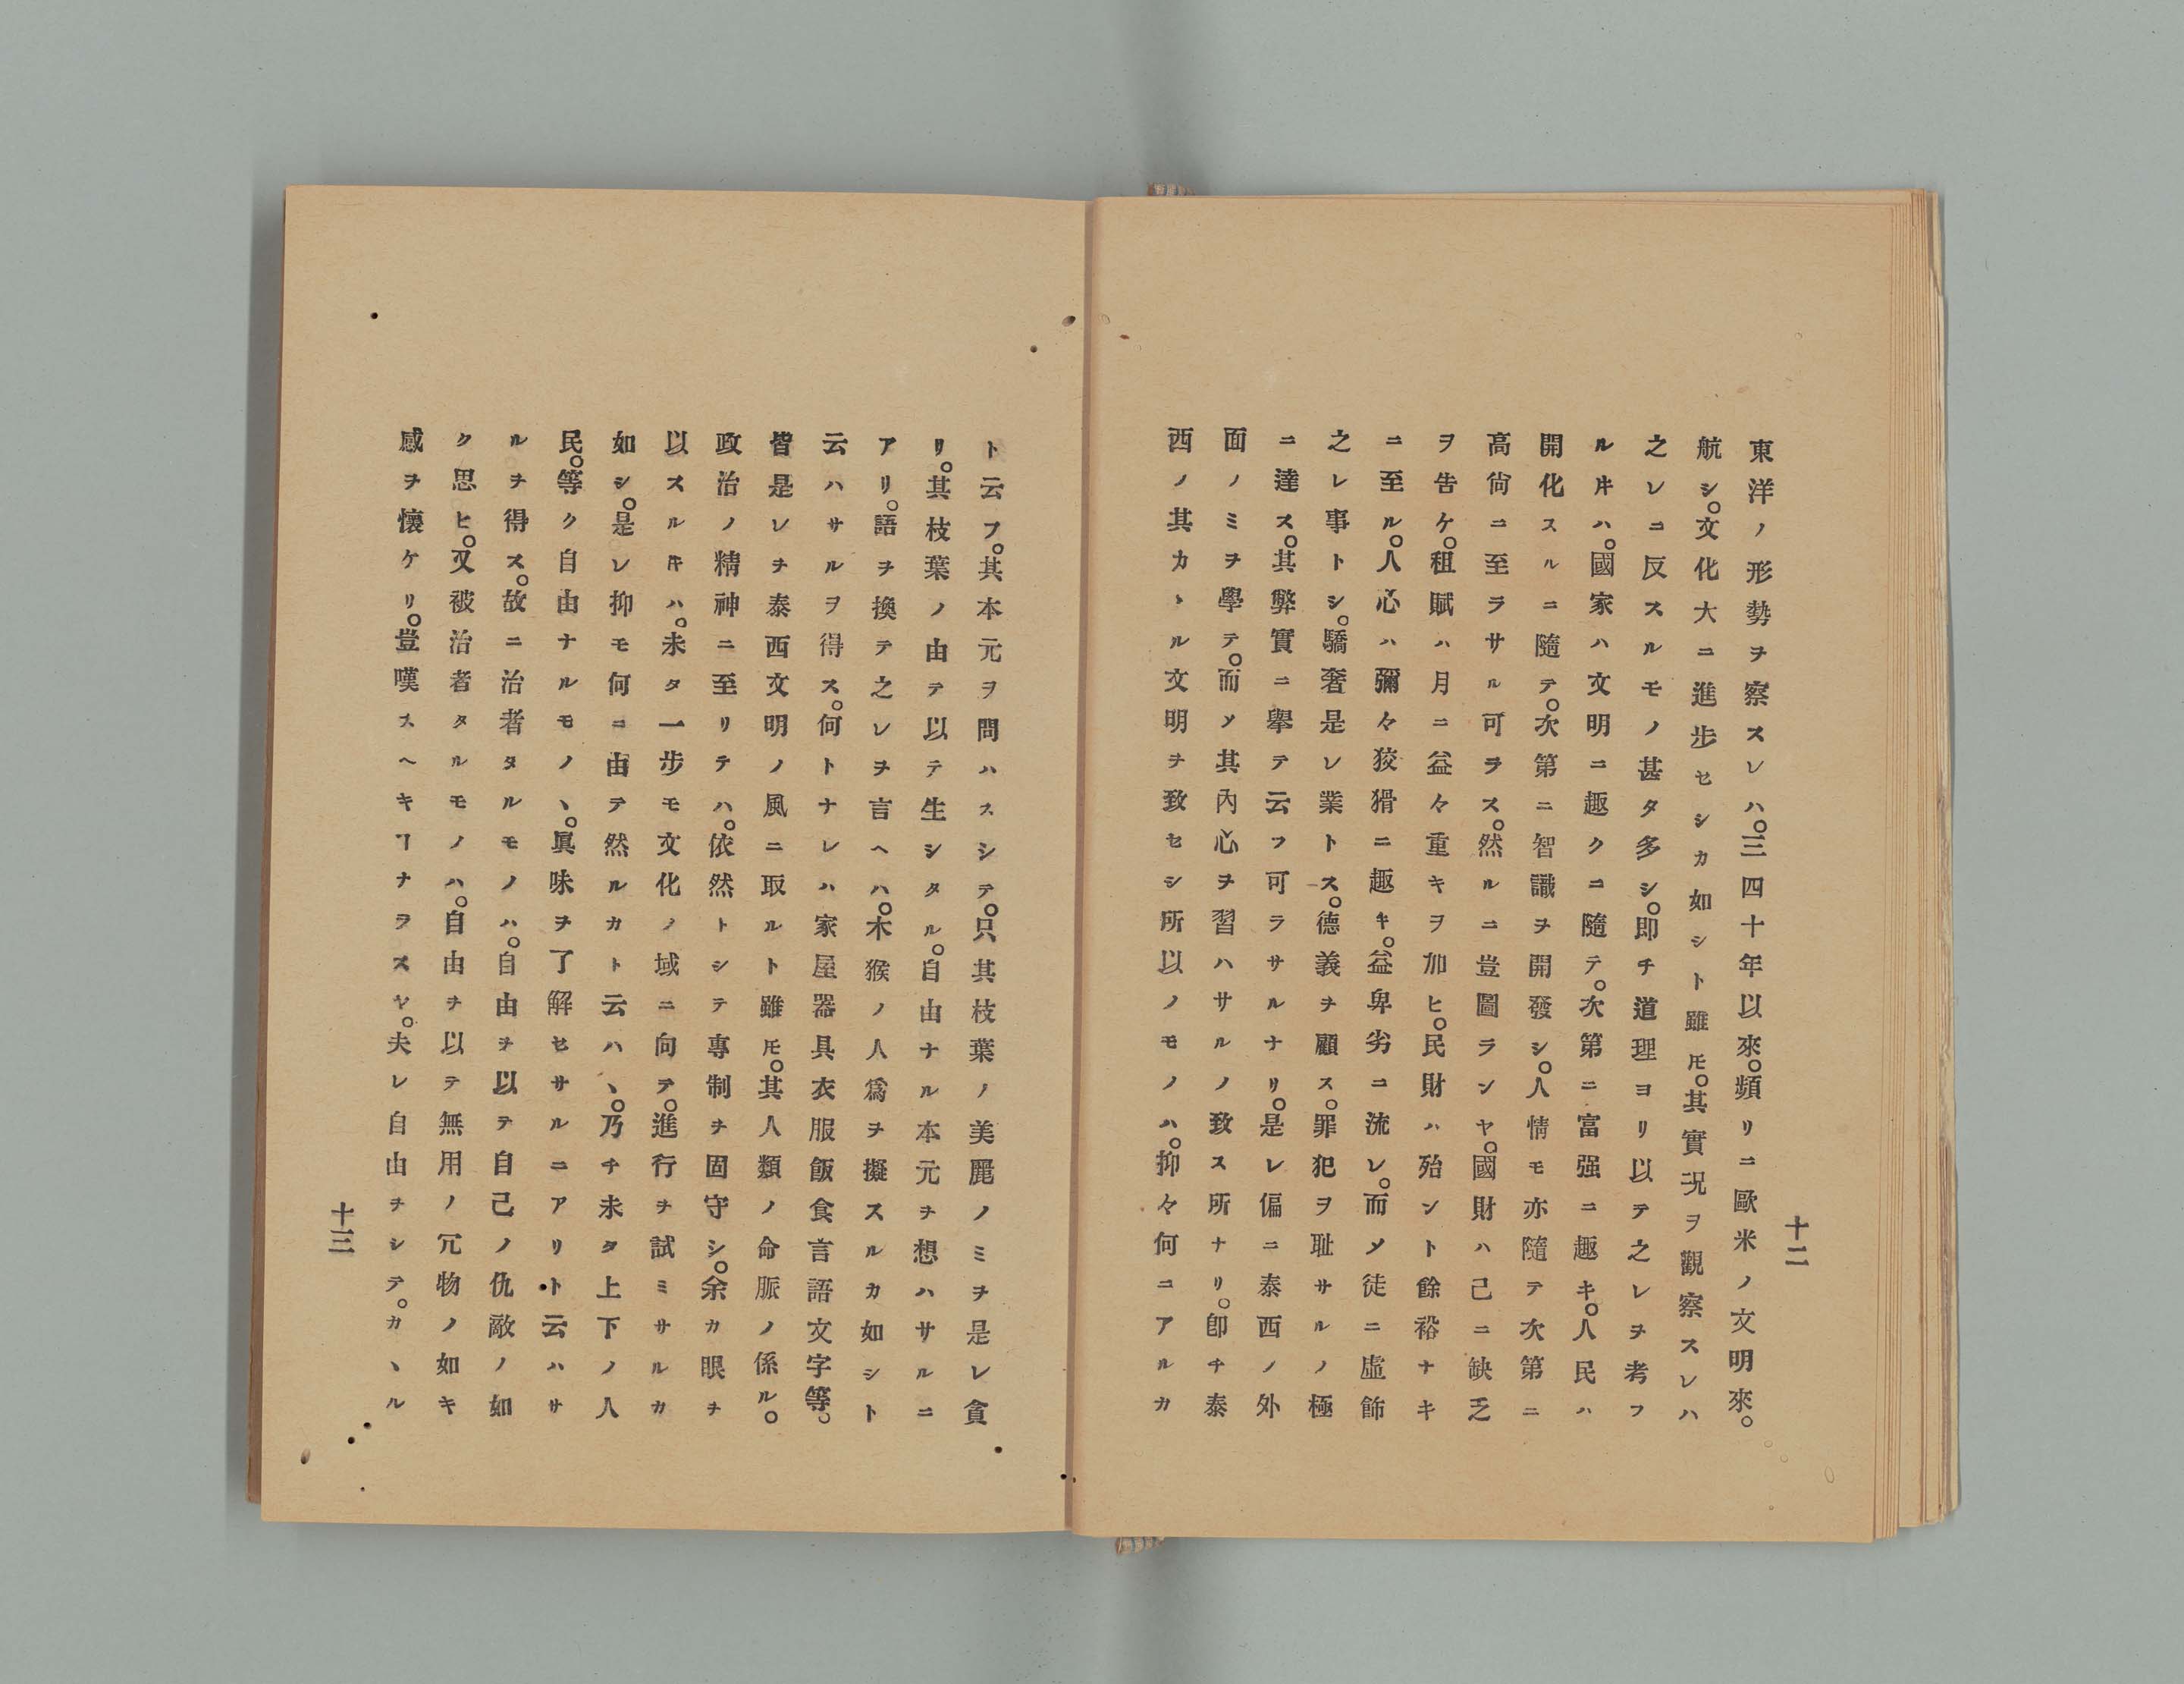 十二
東洋ノ形勢ヲ察スレハ。三四十年以來。頻リニ歐米ノ文明來。
航シ。文化大ニ進步セシカ如シト雖𪜈。其實況ヲ觀察スレハ
之レニ反スルモノ甚タ多シ。即チ道理ヨリ以テ之レヲ考フ
ルㇳキハ。國家ハ文明ニ趣クニ隨テ。次第ニ富强ニ趣キ。人民ハ
開化スルニ隨テ。次第ニ智識ヲ開發シ。人情モ亦隨テ次第ニ
高尙ニ至ラサル可ラス。然ルニ豈圖ランヤ。國財ハ己ニ缺乏
ヲ告ケ。租賦ハ月ニ益々重キヲ加ヒ。民財ハ殆ント餘裕ナキ
ニ至ル。人心ハ彌々狡猾ニ趣キ。益卑劣ニ流レ。而ソ徒ニ虛飾
之レ事トシ。驕奢是レ業トス。德義ヲ顧ス。罪犯ヲ耻サルノ極
ニ達ス。其弊實ニ擧テ云フ可ラサルナリ。是レ偏ニ泰西ノ外
面ノミヲ學テ。而ソ其內心ヲ習ハサルノ致ス所ナリ。卽チ泰
西ノ其カヽル文明ヲ致セシ所以ノモノハ。抑々何ニアルカ
ト云フ。其本元ヲ問ハスシテ。只其枝葉ノ美麗ノミヲ是レ貪
リ。其枝葉ノ由テ以テ生シタル。自由ナル本元ヲ想ハサルニ
アリ。語ヲ換テ之レヲ言ヘハ。木猴ノ人爲ヲ擬スルカ如シト
云ハサルヲ得ス。何トナレハ家屋器具衣服飯食言語文字等。
皆是レヲ泰西文明ノ風ニ取ルト雖𪜈。其人類ノ命脈ノ係ル。
政治ノ精神ニ至リテハ。依然トシテ專制ヲ固守シ。余カ眼ヲ
以スルㇳキハ。未タ一步モ文化ノ域ニ向テ。進行ヲ試ミサルカ
如シ。是レ抑モ何ニ由テ然ルカト云ハヽ。乃チ未タ上下ノ人
民。等ク自由ナルモノヽ。眞味ヲ了解セサルニアリト云ハサ
ルヲ得ス。故ニ治者タルモノハ。自由ヲ以テ自己ノ仇敵ノ如
ク思ヒ。又被治者タルモノハ。自由ヲ以テ無用ノ冗物ノ如キ
感ヲ懷ケリ。豈嘆スヘキヿナラスヤ。夫レ自由ヲシテ。カヽル
十三